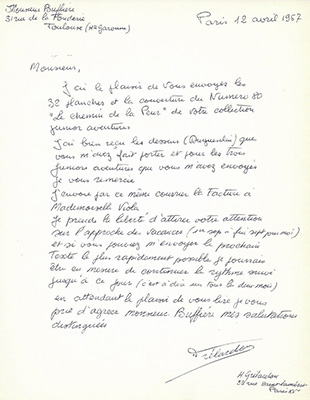 Monsieur Buffière
31 rue de la Fonderie
Toulouse (Hte Garonne)
Paris 12 avril 1957
Monsieur,
J'ai le plaisir de vous envoyer les
32 planches et la couverture du Numero 80
"Le chemin de la Peur" de votre collection
Junior aventures
J'ai bien reçu les dessins (Duquentin) que
vous m'avez fait porter et pour les trois
Juniors aventures que vous m'avez envoyés
je vous remercie
J'envoie par ce même courrier la Facture à
Mademoiselle Viola
Je prends la liberté d'attirer votre attention
sur l'approche des vacances
et si vous pouvez m'envoyer le prochain
Texte le plus rapidement possible je pourrais
être en mesure de continuer le rythme suivi
jusqu'à ce jour (c'est à dire un tous les deux mois)
en attendant le plaisir de vous lire je vous
prie d'agréer monsieur Buffière mes salutations
distinguées
H. Grélardon
Paris